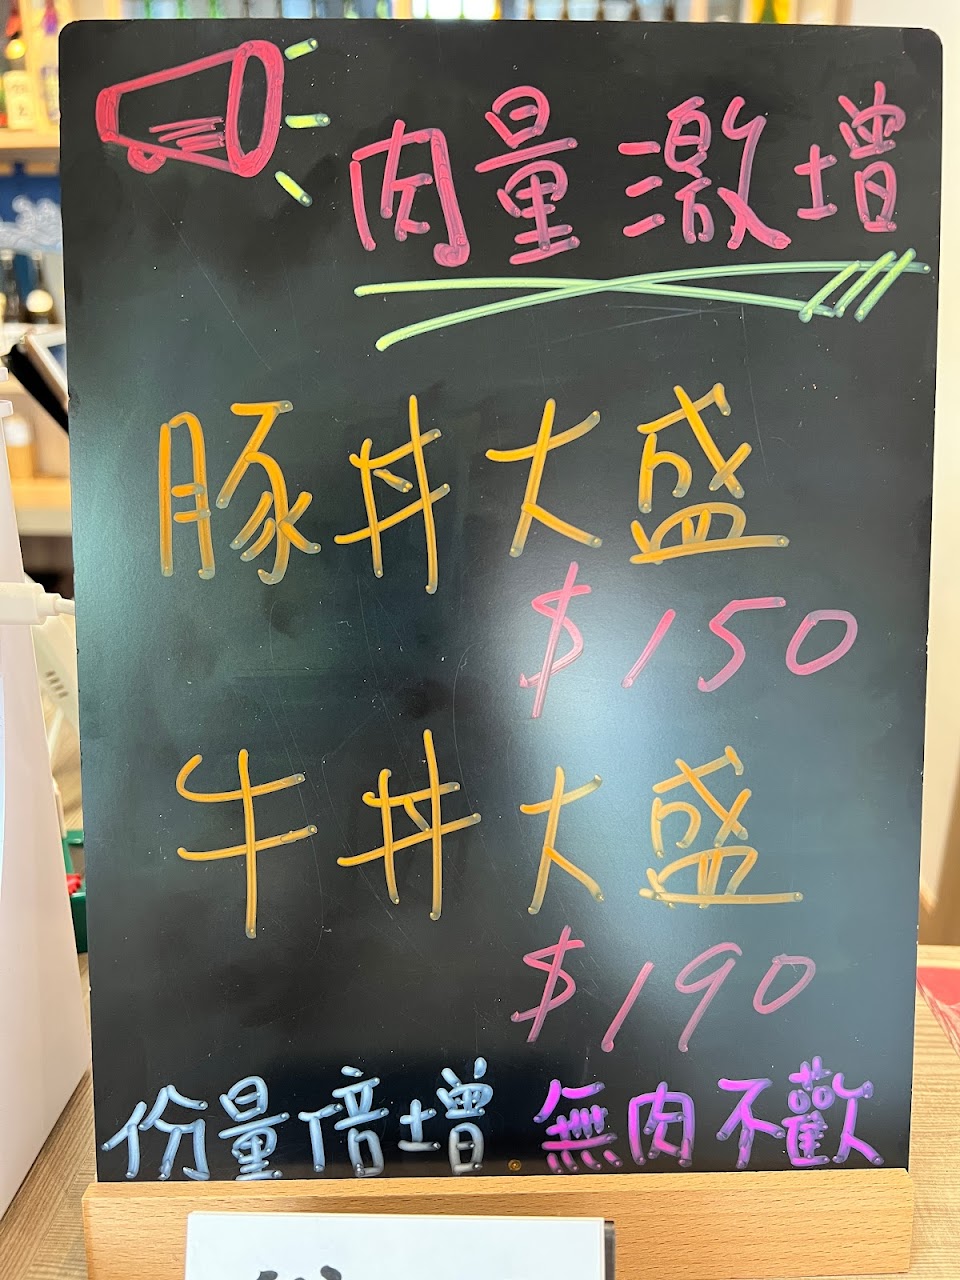 肉量激增
豚丼大盛
$150
牛丼大盛
$190
份量倍增 無肉不歡